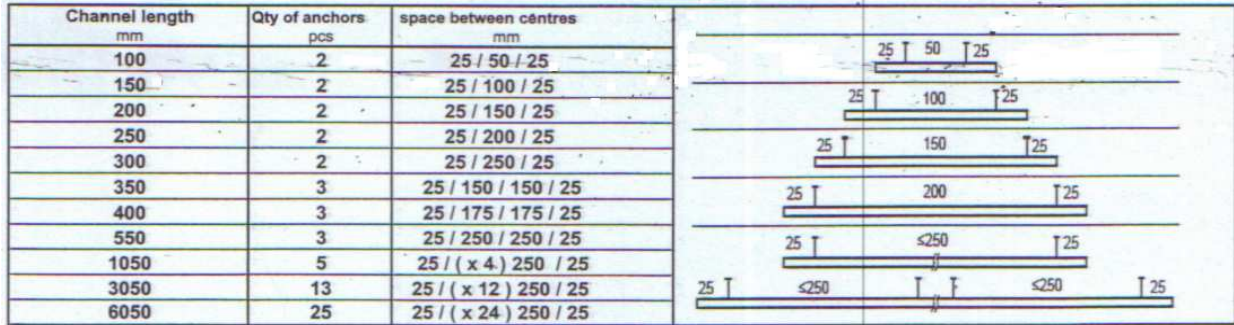 Channel length Qty of anchors space between centres
mm pcs mm
100 2 25 / 50 / 25
150 2 25 / 100 / 25
200 2 25 / 150 / 25
250 2 25 / 200 / 25
300 2 25 / 250 / 25
350 3 25 / 150 / 150 / 25
400 3 25 / 175 / 175 / 25
550 3 25 / 250 / 250 / 25
1050 5 25 / ( x 4 ) 250 / 25
3050 13 25 / ( x 12 ) 250 / 25
6050 25 25 / ( x 24 ) 250 / 25
25 50 25
25 100 25
25 150 25
25 200 25
25 ≤250 25
25 ≤250 ≤250 25